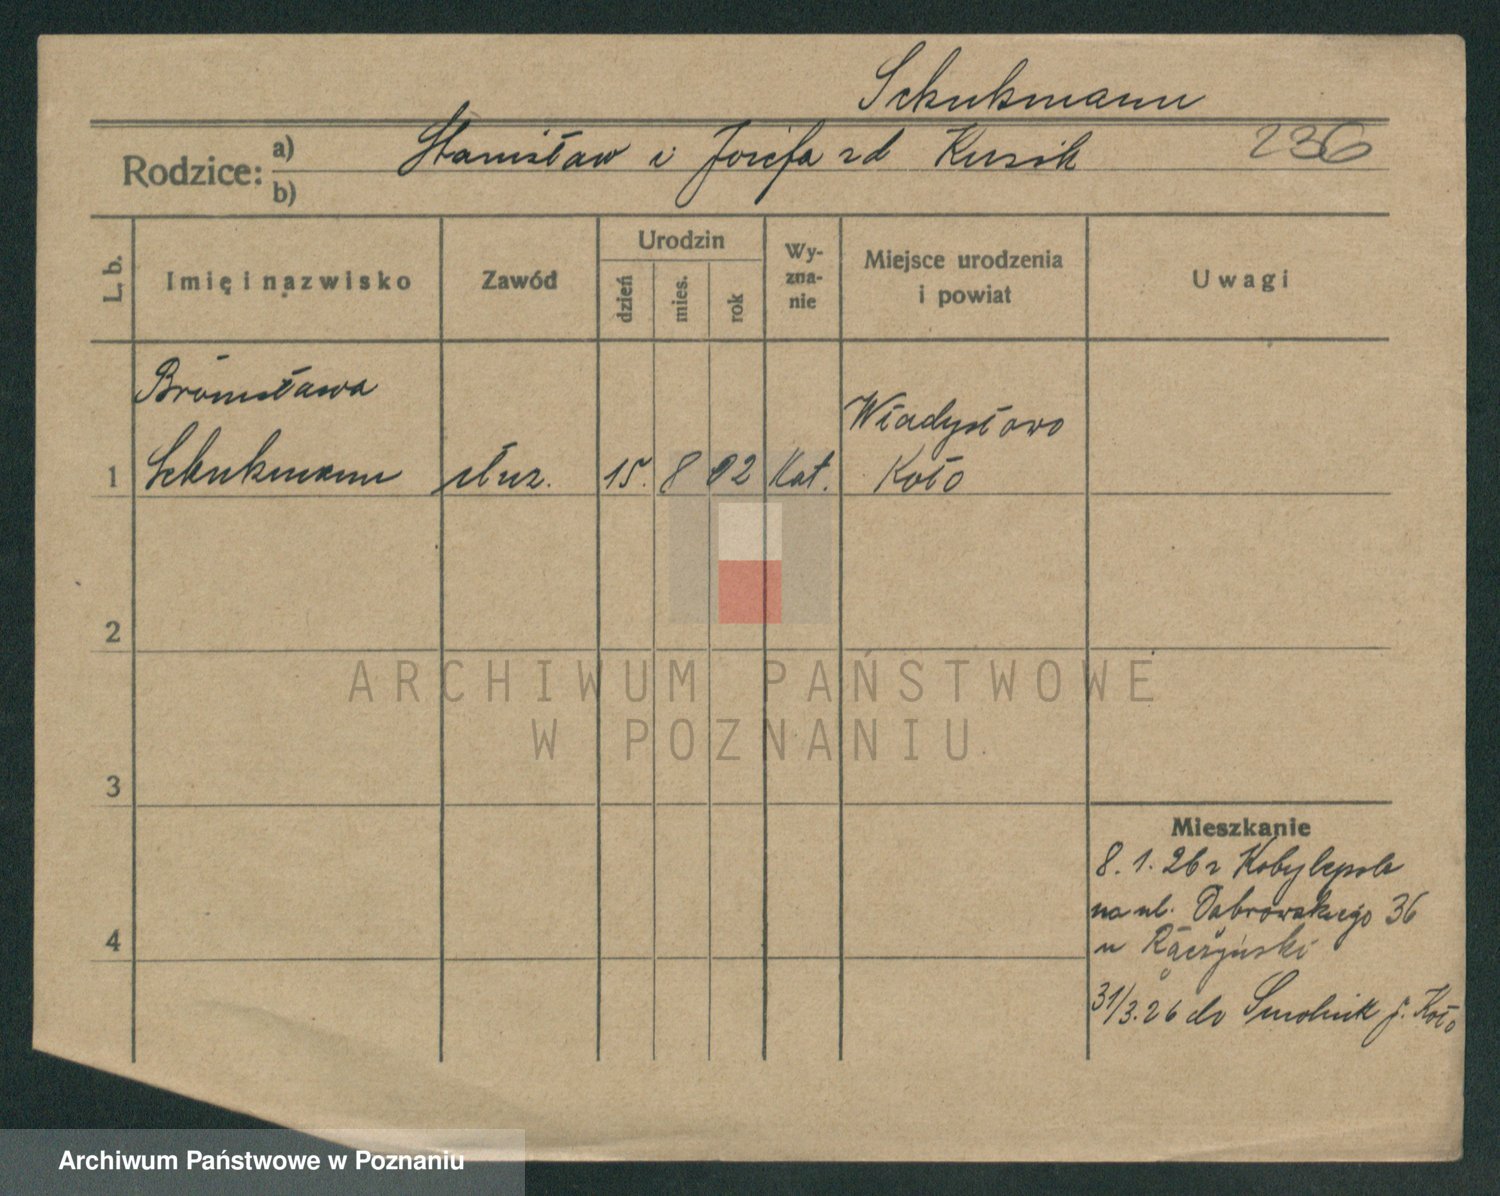 Schukmann
Rodzice: a) Stanisław i Józefa zd Kusik 236
b)
L. b.
Imię i nazwisko
Zawód
Urodzin
dzień
mies.
rok
Wy-
zna-
nie
Miejsce urodzenia
i powiat
Uwagi
Bronisława
1 Schukmann służ. 15. 8 02 Kat.
Władysłowo
Koło
2
3
4
Mieszkanie
8. 1. 26 z Kobylepole
na ul. Dąbrowskiego 36
u Rączyński
31/3. 26 do Smolnik p. Koło
ARCHIWUM PAŃSTWOWE
W POZNANIU
Archiwum Państwowe w Poznaniu